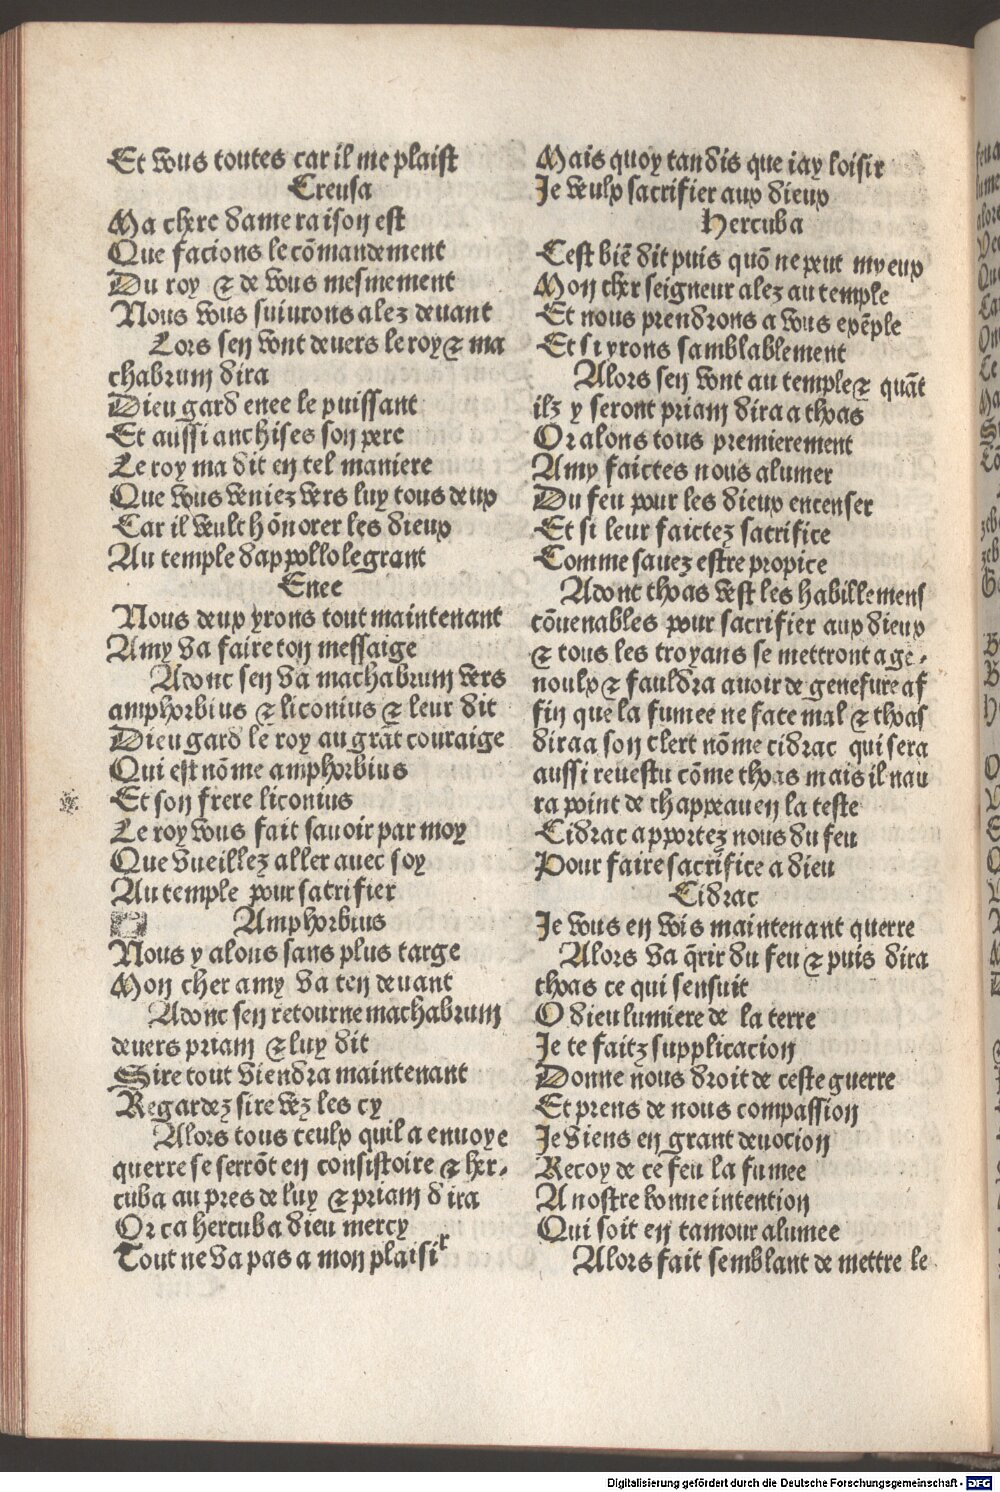 Et vous toutes car il me plaist
Creusa
Ma chere dame raison est
Que facions le cōmandement
Du roy ⁊ de vous mesmement
Nous vous suiurons alez deuant
Lors sen vont deuers le roy ⁊ ma
chabrum dira
Dieu gard enee le puissant
Et aussi anchises son pere
Le roy ma dit en tel maniere
Que vous veniez vers luy tous deux
Car il veult hōnorer les dieux
Au temple dappollo le grant
Enee
Nous deux yrons tout maintenant
Amy va faire ton messaige
Adonc sen va machabrum vers
amphorbius ⁊ liconius ⁊ leur dit
Dieu gard le roy au grāt couraige
Qui est nōme amphorbius
Et son frere liconius
Le roy vous fait sauoir par moy
Que vueillez aller auec soy
Au temple pour sacrifier
Amphorbius
Nous y alons sans plus targe
Mon cher amy va ten deuant
Adonc sen retourne machabrum
deuers priam ⁊ luy dit
Sire tout viendra maintenant
Regardez sire vez les cy
Alors tous ceulx quil a enuoye
querre se serrōt en consistoire ⁊ her-
cuba au pres de luy ⁊ priam dira
Or ca hercuba dieu mercy
Tout ne va pas a mon plaisir
Mais quoy tandis que iay loisir
Je veulx sacrifier aux dieux
Hercuba
Cest biē dit puis quō ne peut myeux
Mon cher seigneur alez au temple
Et nous prendrons a vous exēple
Et si yrons samblablement
Alors sen vont au temple ⁊ quāt
ilz y seront priam dira a thoas
Or alons tous premierement
Amy faictes nous alumer
Du feu pour les dieux encenser
Et si leur faictez sacrifice
Comme sauez estre propice
Adonc thoas vest les habillemens
cōuenables pour sacrifier aux dieux
⁊ tous les troyans se mettront a ge-
noulx ⁊ fauldra auoir de genefure af
fin que la fumee ne face mal ⁊ thoas
dira a son clert nōme cidrac qui sera
aussi reuestu cōme thoas mais il nau
ra point de chappeau en la teste
Cidrac apportez nous du feu
Pour faire sacrifice a dieu
Cidrac
Je vous en vois maintenant querre
Alors va q̄rir du feu ⁊ puis dira
thoas ce qui sensuit
O dieu lumiere de la terre
Je te faitz supplicacion
Donne nous droit de ceste guerre
Et prens de nous compassion
Je viens en grant deuocion
Recoy de ce feu la fumee
A nostre bonne intention
Qui soit en tamour alumee
Alors fait semblant de mettre le
Digitalisierung gefördert durch die Deutsche Forschungsgemeinschaft - DFG